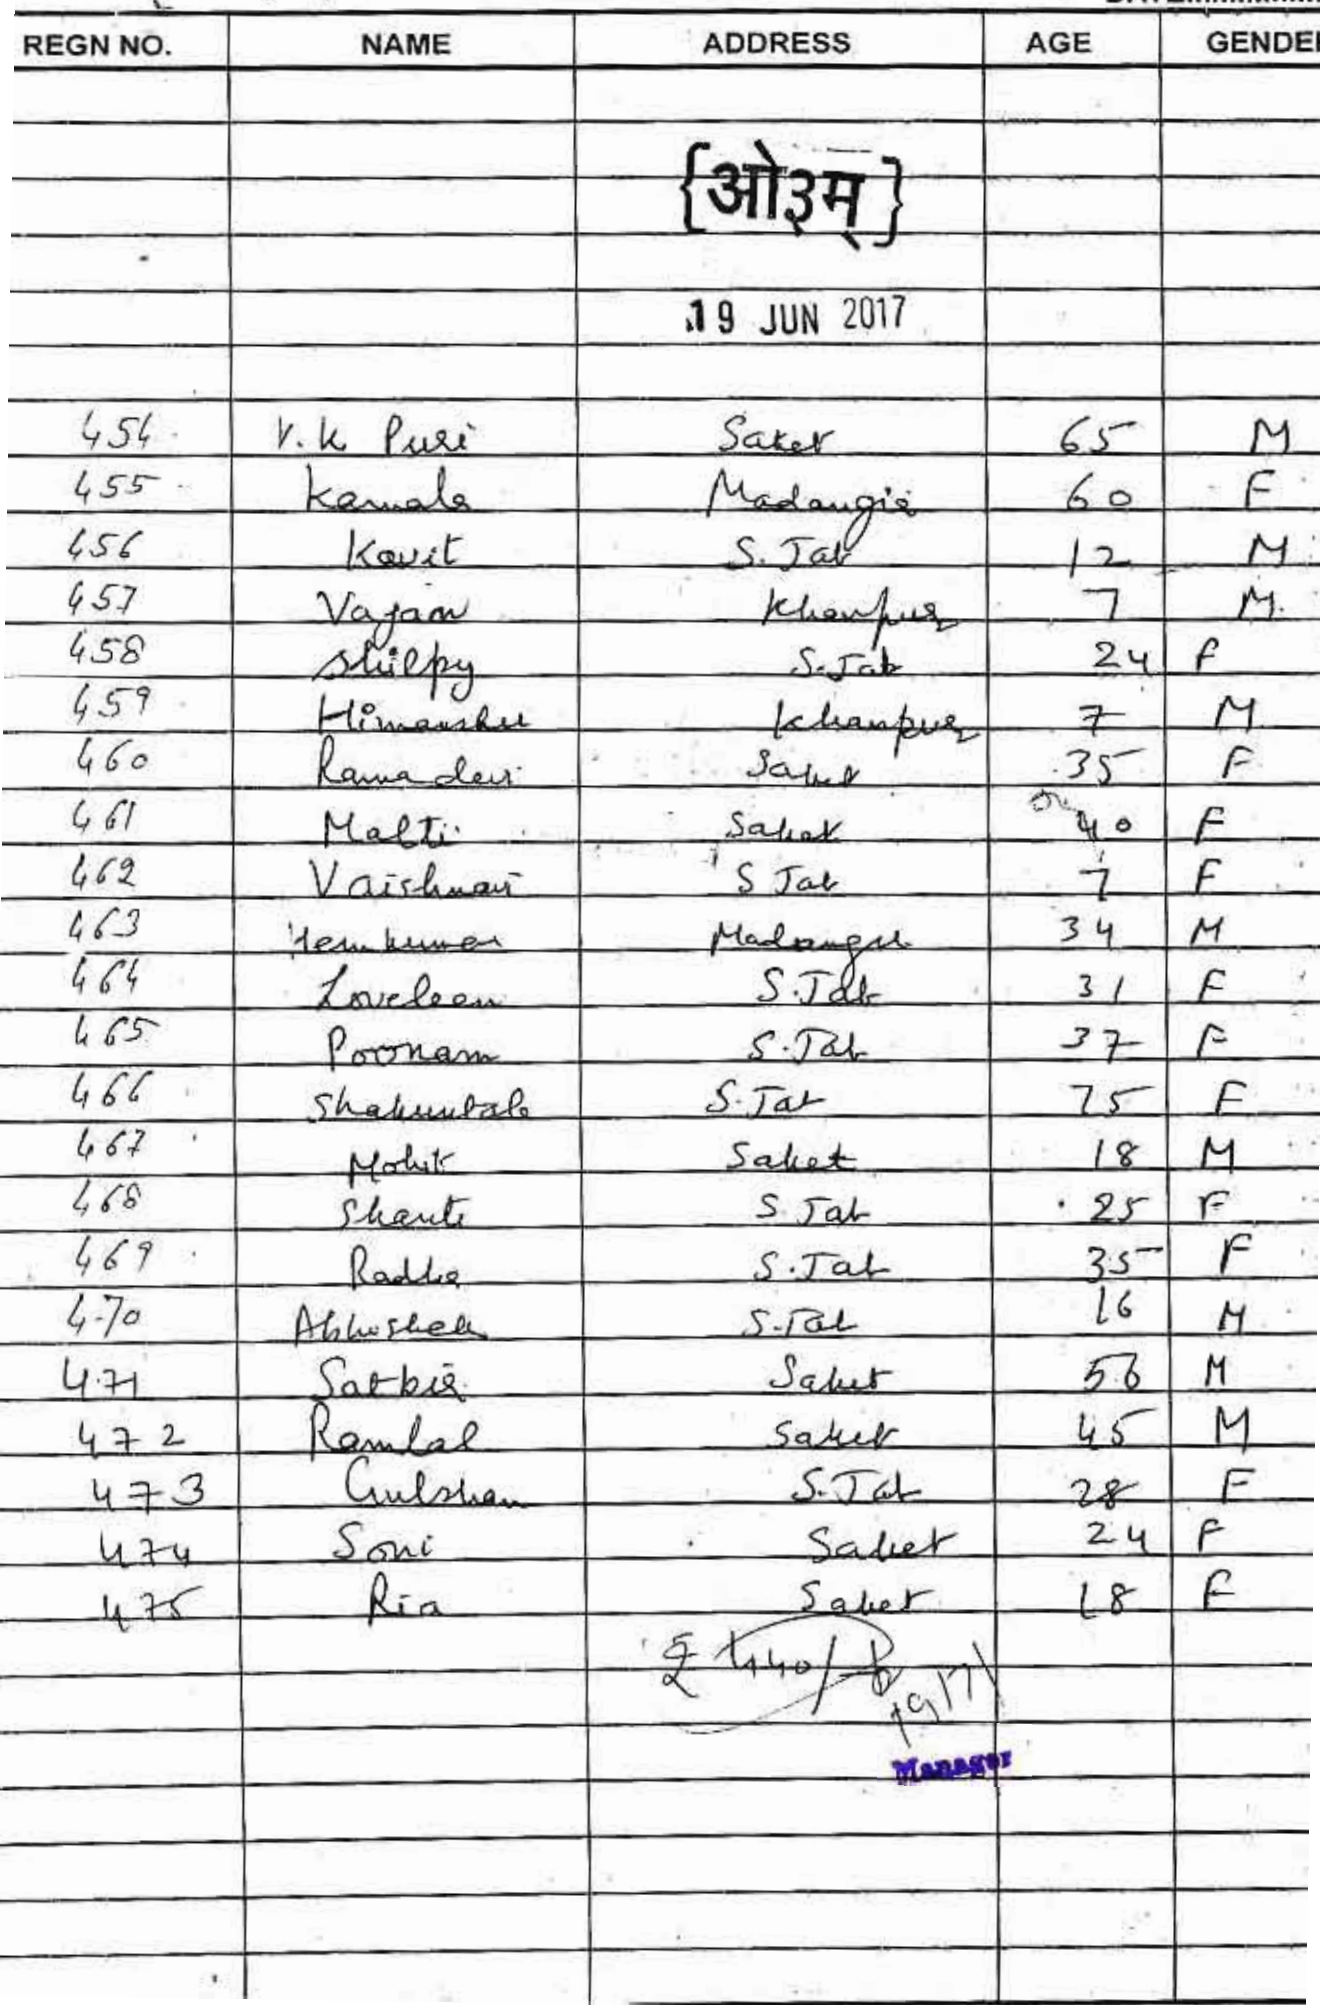 REGN NO. NAME ADDRESS AGE GENDE
{ओ३म्}
19 JUN 2017
454 V.K Puri Saket 65 M
455 Kamala Madangir 60 F
456 Kavit S. Jab 12 M
457 Khanpur 7 M
458 Shilpy S. Jab 24 F
459 Himanshu Khanpur 7 M
460 Rama devi Saket 35 F
461 Malti Saket 40 F
462 Vaishnavi S Jab 7 F
463 Hem kumar Madangir 34 M
464 Loveleen S. Jab 31 F
465 Poonam S. Jab 37 F
466 Shakuntala S. Jab 75 F
467 Mohit Saket 18 M
468 Shanti S. Jab 25 F
469 Radha S. Jab 35 F
470 Abhishek S. Jab 16 M
471 Satbir Saket 56 M
472 Ramlal Saket 45 M
473 Gulshan S. Jab 28 F
474 Soni Saket 24 F
475 Ria Saket 18 F
Manager